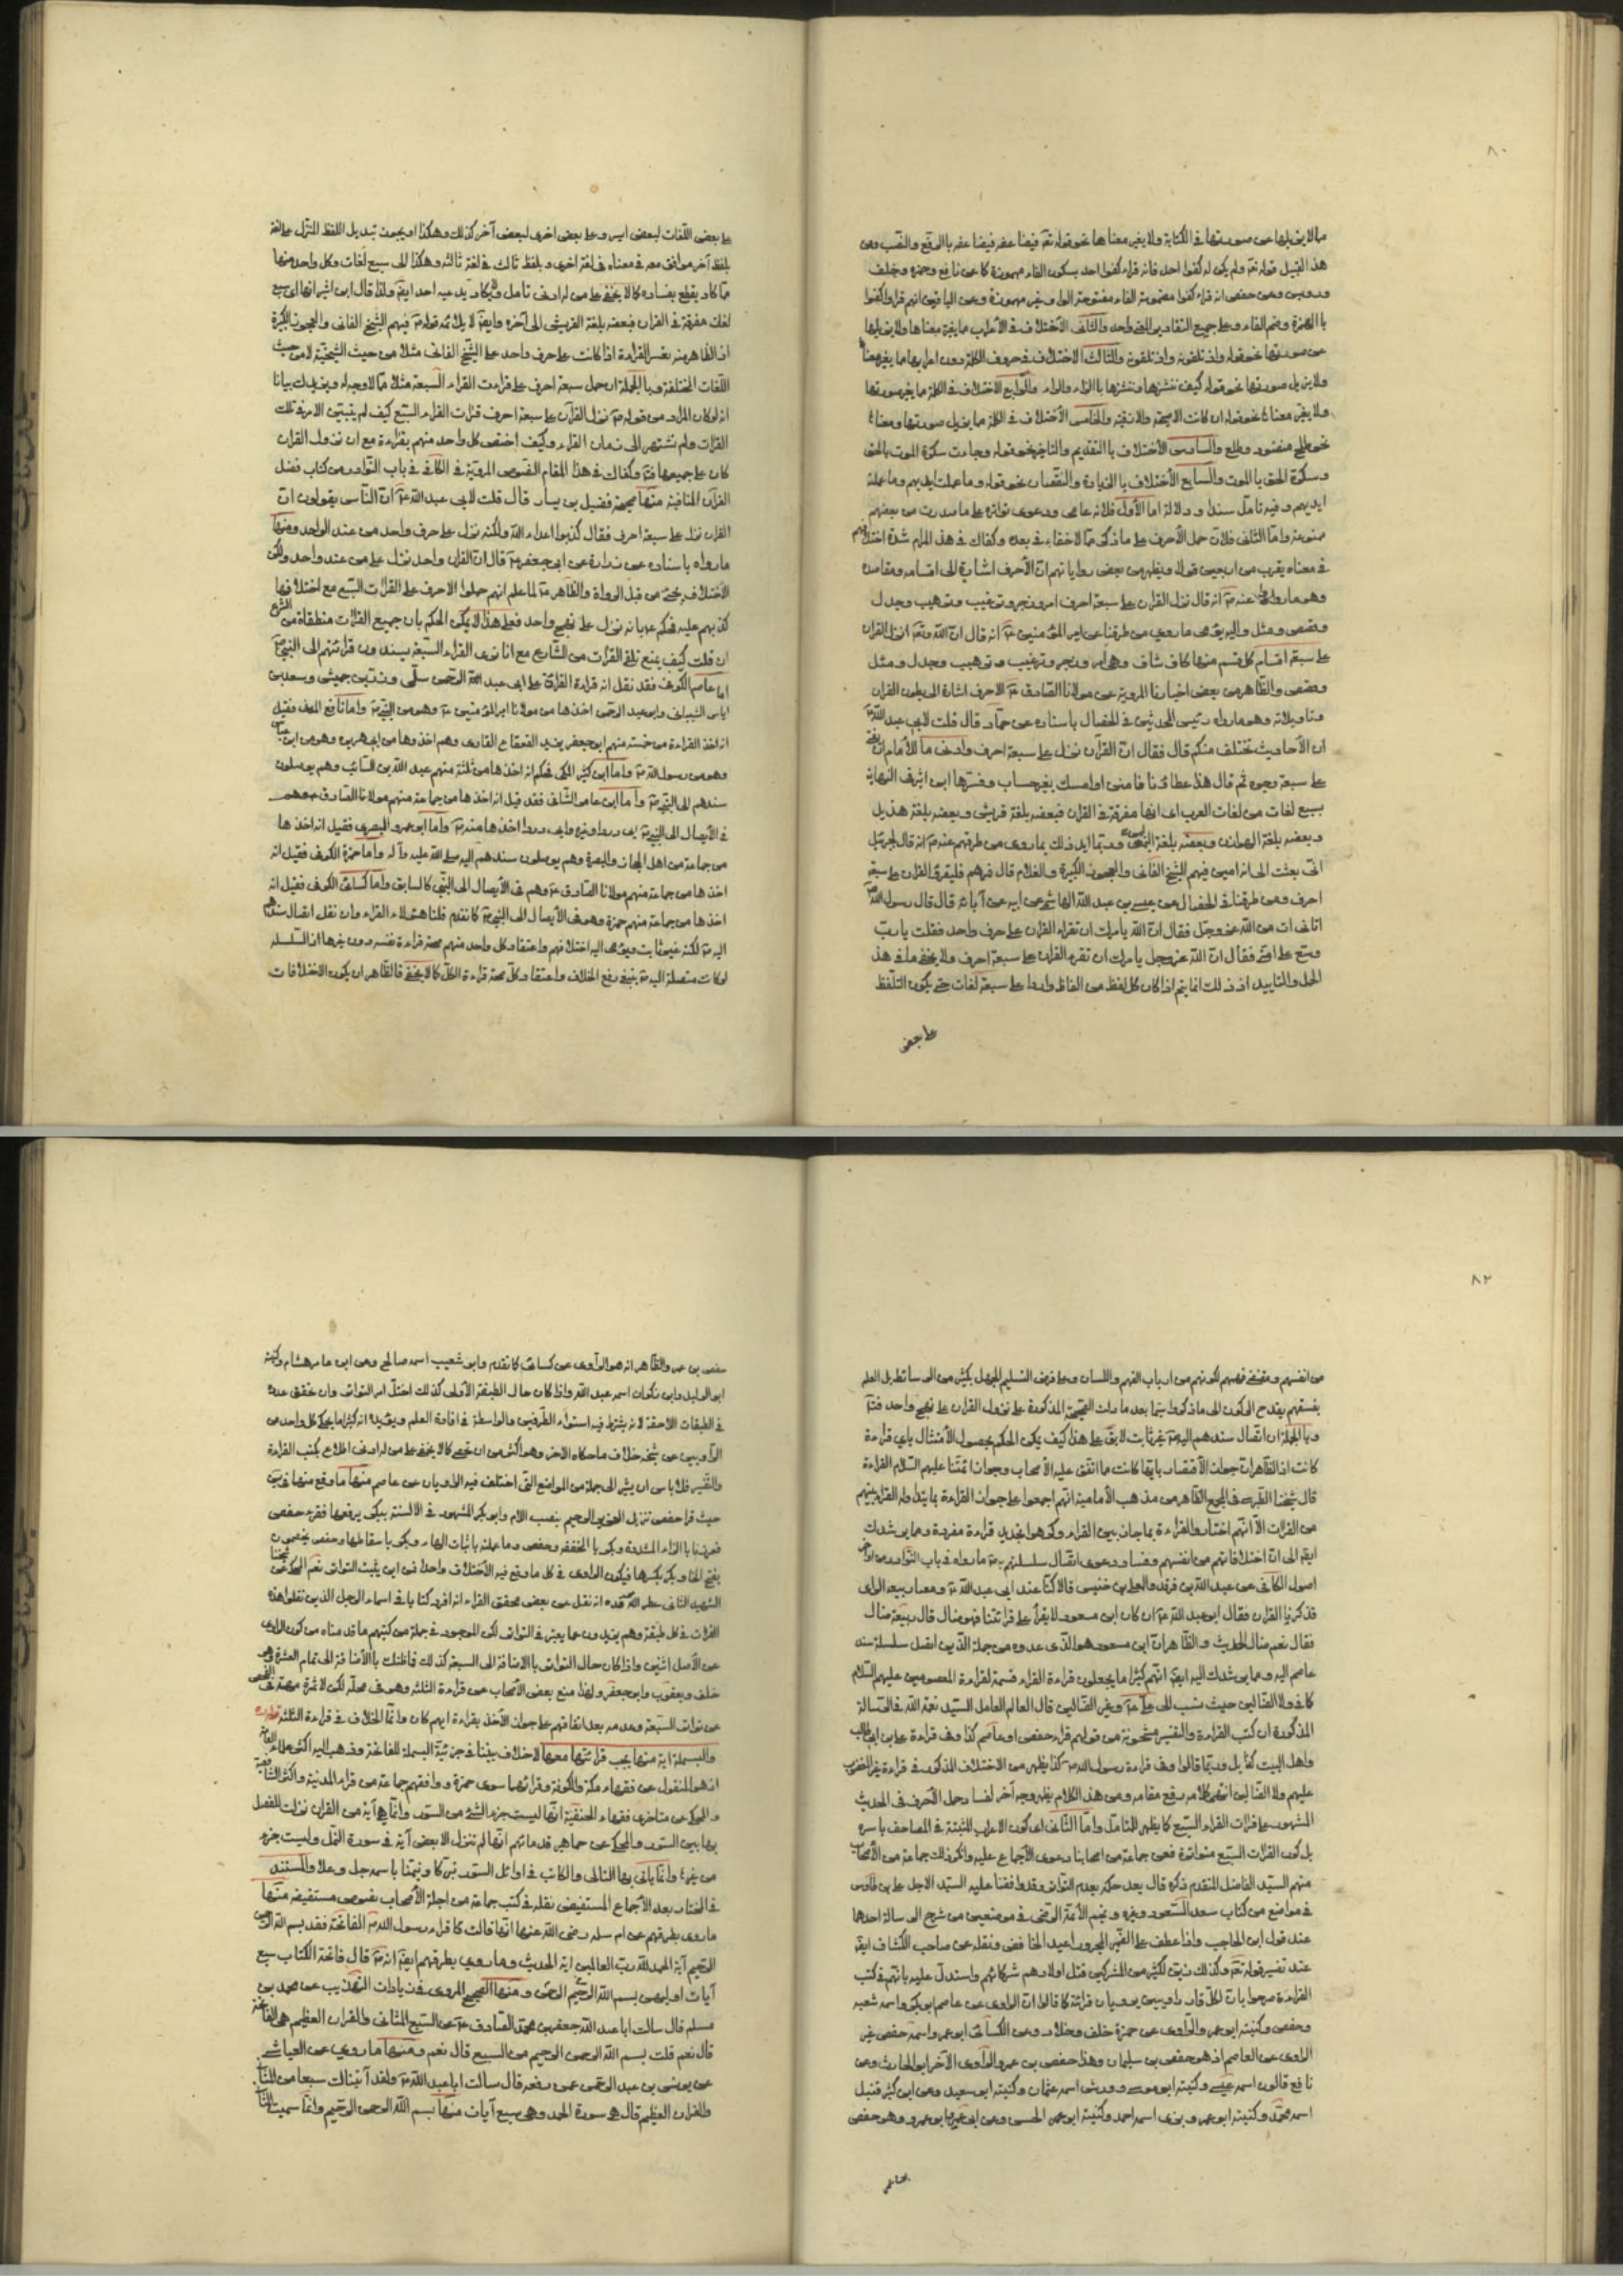 ٨٠
ما لا يزيلها عن صورتها في الكتابة ولا يغير معناها نحو قوله تع فيضاعفه فيضاعفه بالرفع والنصب ومن
هذا القبيل قوله تع ولم يكن له كفوا احد فانه قراء كفوا احد بسكون الفاء مهموزة كا عن نافع وحمزه وخلف
ورويس وعن حفص انه قراء كفوا مضمومة الفاء مفتوحة الواو غير مهموزة وعن الباقين انهم قراوا كفوا
با الهمزة وضم الفاء وعلى جميع التقادير المعنى واحد والثاني الاختلاف في الأعراب مما يغير معناها ولا يزيلها
عن صورتها نحو قوله واذ تلقونه واذ تلقونه والثالث الاختلاف في حروف الكلمة دون اعرابها مما يغير معناها
ولا يزيل صورتها نحو قوله كيف ننشزها وننشرها با الزاء والراء والرابع الاختلاف في الكلمة مما يغير صورتها
ولا يغير معناها نحو قوله ان كانت الا صيحة والا زقية والخامس الأختلاف في الكلمة مما يزيل صورتها ومعناها
نحو طلح منضود وطلع والسادس الأختلاف با التقديم والتاخير نحو قوله وجاءت سكرة الموت بالحق
وسكرة الحق با الموت والسابع الأختلاف با الزيادة والنقصان نحو قوله وما عملت ايديهم وما عملته
ايديهم وفيه تامل سندا ودلالة اما الأول فلانه عامى ودعوى تواتره على ما صدرت من بعضهم
ممنوعة واما الثانى فلان حمل الأحرف على ما ذكر مما لا خفاء في بعده وكفاك في هذا المرام شدة اختلافهم
في معناه يقرب من اربعين قولا ويظهر من بعض رواياتهم ان الأحرف اشارة الى اقسامه ومقاصده
وهو ما رووا عنه ص انه قال نزل القران على سبعة احرف امر وزجر وترغيب وترهيب وجدل
وقصص ومثل واليه يؤمى ما روي من طرقنا عن امير المؤمنين ع انه قال ان الله تع انزل القران
على سبعة اقسام كل قسم منها كاف شاف وهى امر وزجر وترغيب وترهيب وجدل ومثل
وقصص والظاهر من بعض اخبارنا المروية عن مولانا الصادق ع الاحرف اشارة الى بطون القران
وتاويلاته وهو ما رواه رئيس المحدثين في الخصال باسناده عن حماد قال قلت لابى عبد الله ع
ان الأحاديث تختلف منكم قال فقال ان القرآن نزل على سبعة احرف وادنى ما للأمام ان يفتى
على سبعة وجوه ثم قال هذا عطاؤنا فامنن او امسك بغير حساب وفسرها ابن اثير في النهاية
بسبع لغات من لغات العرب اى انها مفرقة في القران فبعضه بلغة قريش وبعضه بلغة هذيل
وبعضه بلغة الهوازن وبعضه بلغة اليمن وربما ايد ذلك بما روى من طرقهم عنه ص انه قال لجبرئيل
انى بعثت الى امة اميين فيهم الشيخ الفانى والعجوز الكبيرة والغلام قال فمرهم فليقرؤا القران على سبعة
احرف ومن طرقنا في الخصال عن عيسى بن عبد الله الهاشمى عن ابيه عن آبائه قال قال رسول الله ص
اتانى ات من الله عز وجل فقال ان الله يأمرك ان تقراء القران على حرف واحد فقلت يا رب
وسع على امتى فقال ان الله عز وجل يامرك ان تقرء القران على سبعة احرف ولا يخفى ما في هذا
الحمل والتاييد اذ ذلك انما يتم اذا كان كل لفظ من الفاظه واردا على سبعة لغات حتى يكون التلفظ
على بعض
على بعض اللغات لبعض ايسر وعلى بعض اخرى لبعض آخر كذلك وهكذا او يجوز تبديل اللفظ المنزل على لغة
بلفظ آخر موافق معه في معناه في لغة اخرى و بلفظ ثالث في لغة ثالثه وهكذا الى سبع لغات وكل واحد منها
مما كاد يقطع بفساده كما لا يخفى على من له ادنى تامل ولا يكاد يدعيه احد ايض ولذا قال ابن اثير انها اى سبع
لغات مفرقة في القران فبعضه بلغة القريش الى آخره وايض لا يلائمه قوله ص فيهم الشيخ الفانى والعجوز الكبيرة
اذ الظاهر منه نفس القراءة اذا كانت على حرف واحد على الشيخ الفانى مثلا من حيث الشيخية لا من حيث
اللغات المختلفة و با الجملة ان حمل سبعة احرف على قراءت القراء السبعة مثلا مما لا وجه له ويزيدك بيانا
انه لو كان المراد من قوله ص نزل القرآن على سبعة احرف قرات القراء السبع كيف لم يتبين الامر في تلك
القرات ولم تشتهر الى زمان القراء وكيف اختص كل واحد منهم بقراءة مع ان نزول القران
كان على جميعها فتأمل وكفاك في هذا المقام النصوص المروية في الكافى في باب النوادر من كتاب فضل
القران المنافية منها صحيحة فضيل بن يسار قال قلت لابى عبد الله ع ان الناس يقولون ان
القران نزل على سبعة احرف فقال كذبوا اعداء الله ولكنه نزل على حرف واحد من عند الواحد ومنها
ما رواه باسناده عن زرارة عن ابى جعفر ع قال ان القران واحد نزل من عند واحد ولكن
الاختلاف يجئ من قبل الرواة والظاهر انه ع لما علم انهم حملوا الاحرف على القرات السبع مع اختلافها
كذبهم عليه فحكم ع بانه نزل على نهج واحد فعلى هذا لا يمكن الحكم بان جميع القرات منطقاة من الشرع
ان قلت كيف يمنع تلقى القرات من الشارع مع انا نرى القراء السبعة يسندون قرائتهم الى النبى ص
اما عاصم الكوفى فقد نقل انه قراءة القران على ابى عبد الله الرحمن سلمى وزر بن حبيش وسعد بن
اياس الشيبانى وابو عبد الرحمن اخذها من مولانا امير المؤمنين ع وهو من النبى ص واما نافع المدنى فقيل
انه اخذ القراءة من خمسة منهم ابو جعفر يزيد القعقاع القارى وهم اخذوها من ابى هريره وهو من ابن عباس
وهو من رسول الله ص واما ابن كثير المكى فحكم انه اخذها من ثلثة منهم عبد الله بن السائب وهم يوصلون
سندهم الى النبى ص واما ابن عامر الشامى فقد قيل انه اخذها من جماعة منهم مولانا الصادق ع وهم
من جماعة من اهل الحجاز والبصرة وهم يوصلون سندهم اليه صلى الله عليه وآله واما حمزة الكوفى فقيل انه
اخذها من جماعة منهم مولانا الصادق ع وهم في الأيصال الى النبى كالسابق واما كسائى الكوفى فقيل انه
اخذها من جماعة منهم حمزة وهو في الأيصال الى النبى ص كما تقدم قلنا هؤلاء القراء وان نقل اتصال سندهم
اليه ص لكنه غير ثابت ويؤمى اليه اختلافهم واعتقاد كل واحد منهم صحة قراءة نفسه دون غيرها اذ السلسلة
لو كانت متصلة اليه ص ينبغى رفع الخلاف واعتقاد كل صحة قراءة الكل كما لا يخفى فالظاهر ان يكون الاختلافات
٨٢
من انفسهم ومقتضى فهمهم لكونهم من ارباب الفهم واللسان وعلى فرض التسليم المجهل بكثير من الوسائط بل العلم
بفسقهم يقدح الركون الى ما ذكروا سيما بعد ما دلت الصحيحة المذكورة على نزول القران على نهج واحد فتأمل
وبا الجملة ان اتصال سندهم اليه ص غير ثابت لا يق على هذا كيف يمكن الحكم بحصول الأمتثال باى قراءة
كانت اذ الظاهر ان جواز الأقتصار بايها كانت مما اتفق عليه الأصحاب وجوز ائمتنا عليهم السلام القراءة
قال شيخنا الطبرسى في المجمع الظاهر من مذهب الأمامية انهم اجمعوا على جواز القراءة بما يتداوله القراء بينهم
من القرات الا انهم اختاروا القراءة بما جاز بين القراء وكرهوا تجريد قراءة مفردة ومما يرشدك
ايض الى ان اختلافاتهم من انفسهم وفسا ودعوى اتصال سلسلتهم به ص ما رواه في باب النوادر من اواخر
اصول الكافى عن عبد الله بن فرقد والمعلى بن خنيس قالا كنا عند ابى عبد الله ع ومعنا ربيعة الراى
فذكرنا القران فقال ابو عبد الله ع ان كان ابن مسعود لا يقرأ على قرائتنا فهو ضال قال ربيعة ضال
فقال نعم ضال الحديث والظاهر ان ابن مسعود هو الذى عدوه من جملة الذين اتصل سلسلة سند
عاصم اليه ومما يرشدك اليه ايض انهم كثيرا ما يجعلون قراءة القراء قسمة لقراءة المعصومين عليهم السلام
كما في ولا الضالين حيث نسب الى على ع وغير الضالين قال العالم العامل السيد نعمة الله في الرسالة
المذكورة ان كتب القراءة والتفسير مشحونة من قولهم قراء حفص او عاصم كذا وفى قراءة على بن ابى طالب
واهل البيت كذا بل وربما قالوا وفى قراءة رسول الله ص كذا يظهر من الاختلاف المذكور في قراءة غير المغضوب
عليهم ولا الضالين انتهى كلامه رفع مقامه ومن هذا الكلام يظهر وجه آخر لفساد حمل الأحرف في الحديث
المشهور على قرات القراء السبع كما يظهر للمتامل واما الثانى اى كون الاعراب المثبتة في المصاحف باسره
بل كون القرات السبع متواترة فعن جماعة من اصحابنا دعوى الأجماع عليه وانكر ذلك جماعة من الأصحاب
منهم السيد الفاضل المتقدم ذكره قال بعد حكمه بعدم التواتر وقد وافقنا عليه السيد الاجل على بن طاوس
في مواضع من كتاب سعد السعود وغيره ونجم الأئمة الرضى في موضعين من شرح الرسالة احدهما
عند قول ابن الحاجب واذا عطف على الضمير المجرور اعيد الخافض ونقله عن صاحب الكشاف ايض
عند تفسير قوله تع وكذلك زين لكثير من المشركين قتل اولادهم شركائهم واستدل عليه بانهم في كتب
القراءة صرحوا بان لكل قار راويين يرويان قرائته كما قالوا ان الراوى عن عاصم ابو بكر واسمه شعبه
وحفص وكنيته ابو عمر والراوى عن حمزة خلف وخلاد وعن الكسائى ابو عمر واسمه حفص غير
الراوى عن العاصم اذ هو حفص بن سليمان وهذا حفص بن عمر والراوى الآخر ابو الحارث وعن
نافع قالون اسمه عيسى وكنيته ابو موسى وورش اسمه عثمان وكنيته ابو سعيد وعن ابن كثير قنبل
اسمه محمد وكنيته ابو عمر وبزى اسمه احمد وكنيته ابو عمر الحسن وعن ابى عمرو ابو عمرو وهو حفص
حفص بن عمر والظاهر انه هو الراوى عن كسائى كما تقدم وابو شعيب اسمه صالح وعن ابن عامر هشام وكنيته
ابو الوليد وابن ذكوان اسمه عبد الله واذا كان حال الطبقة الأولى كذلك اختل امر التواتر وان تحقق عدده
في الطبقات الاحقة لانه يشترط فيه استواء الطرفين والواسطة في افادة العلم ويؤيده انه كثيرا ما يحكى كل واحد من
الراويين عن شيخه خلاف ما حكاه الاخر وهو اكثر من ان يحصى كما لا يخفى على من له ادنى اطلاع بكتب القراءة
والتفسير فلا باس ان نشير الى جملة من المواضع التى اختلف فيه الراويان عن عاصم منها ما وقع منها في يس
حيث قرا حفص تنزيل العزيز الرحيم بنصب الام وابو بكر المشهور في الالسنة ببكر يرفعها فقرء حفص
فعززنا با الزاء المشددة وبكر با المخففه وحفص وما عملته باثبات الهاء وبكر باسقاطها وحفص يخصمون
بفتح الخاء وبكر بكسرها فيكون الراوى في كل ما وقع فيه الأختلاف واحدا فمن اين يثبت التواتر نعم المحكى عن شيخنا
الشهيد الثانى عطر الله مرقده انه نقل عن بعض محققى القراء انه افرد كتابا في اسماء الرجال الذين نقلوا هذه
القرات في كل طبقة وهم يزيدون عما يعتبر في التواتر لكن الموجود في جملة من كتبهم ما قدمناه من كون الراوى
عن الأصل اثنين واذا كان حال التواتر با الاضافة الى السبعة كذلك فما ظنك با الأضافة الى تمام العشرة وهو
خلف ويعقوب وابو جعفر ولهذا منع بعض الأصحاب عن قراءة الثلثه وهو في محله لكن لا ثمرة مهمة في الفحص
عن تواتر السبعة وعدمه بعد اتفاقهم على جواز الأخذ بقراءة ايهم كان وانما الخلاف في قراءة الثلثة
والبسملة اية منها يجب قرائتها معها لا خلاف بيننا في جزئية البسملة للفاتحة وذهب اليه اكثر علماء العامة
اذ هو المنقول عن فقهاء مكة والكوفة وقرائهما سوى حمزة ووافقهم جماعة من قراء المدنية واكثر الشافعية
والمحكى عن متاخرى فقهاء الحنفية انها ليست جزء الشئ من السور وانما هى آية من القران نزلت للفصل
بها بين السور والمحكى عن جماهير قدمائهم انها لم تنزل الا بعض آية في سورة النمل وليست جزء
من غيرها وانما ياتى بها التالى والكاتب في اوائل السور تبركا وتيمنا باسمه جل وعلا والمستند
في المختار بعد الأجماع المستفيض نقله في كتب جماعة من اجلة الأصحاب نصوص مستفيضة منها
ما روى بطرقهم عن ام سلمه رضى الله عنها انها قالت قراء رسول الله ص الفاتحة فعد بسم الله الرحمن
الرحيم آية الحمد لله رب العالمين اية الحديث وما روى بطرقهم ايض انه ص قال فاتحة الكتاب سبع
آيات اولهن بسم الله الرحمن الرحيم ومنها الصحيح المروى في زيادات التهذيب عن محمد بن
مسلم قال سالت ابا عبد الله جعفر بن محمد الصادق ع عن السبع المثانى والقران العظيم هى الفاتحة
قال نعم قلت بسم الله الرحمن الرحيم من السبع قال نعم ومنها ما روي عن العياشى
عن يونس بن عبد الرحمن عمن رفعه قال سالت ابا عبد الله ع ولقد آتيناك سبعا من المثانى
والقران العظيم قال هى سورة الحمد وهى سبع آيات منها بسم الله الرحمن الرحيم وانما سميت المثانى